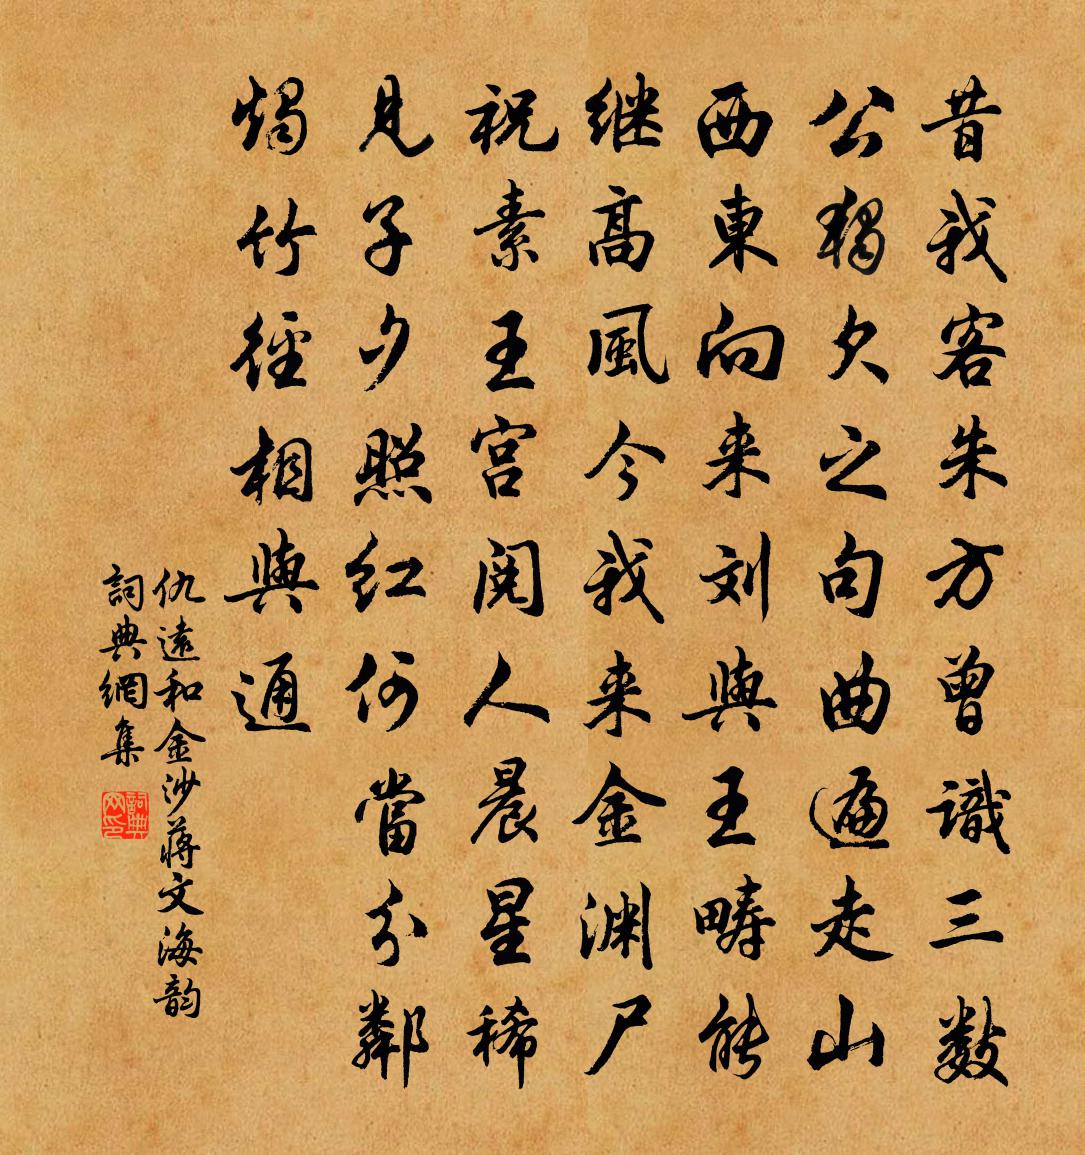 昔我客朱方曾識三數
公獨欠之句曲遍走山
西東向来刘與王畴能
继髙風今我来金渊尸
祝素王宫阅人晨星稀
見子夕照红何當分鄰
燭竹徑相與通
仇遠和金沙蔣文海韵
詞典網集
詞典网印